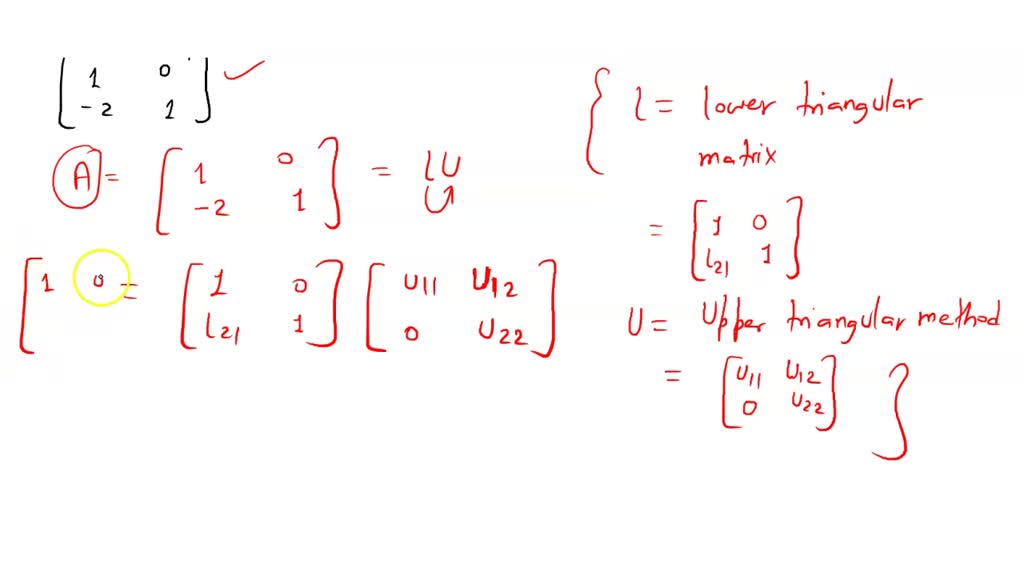 [1 0
-2 1] ✓
A = [1 0
-2 1] = LU
[1 0 = [1 0
l21 1] [u11 u12
0 u22]
{ l = lower triangular
matrix
= [1 0
l21 1]
U = Upper triangular method
= [u11 u12
0 u22] }